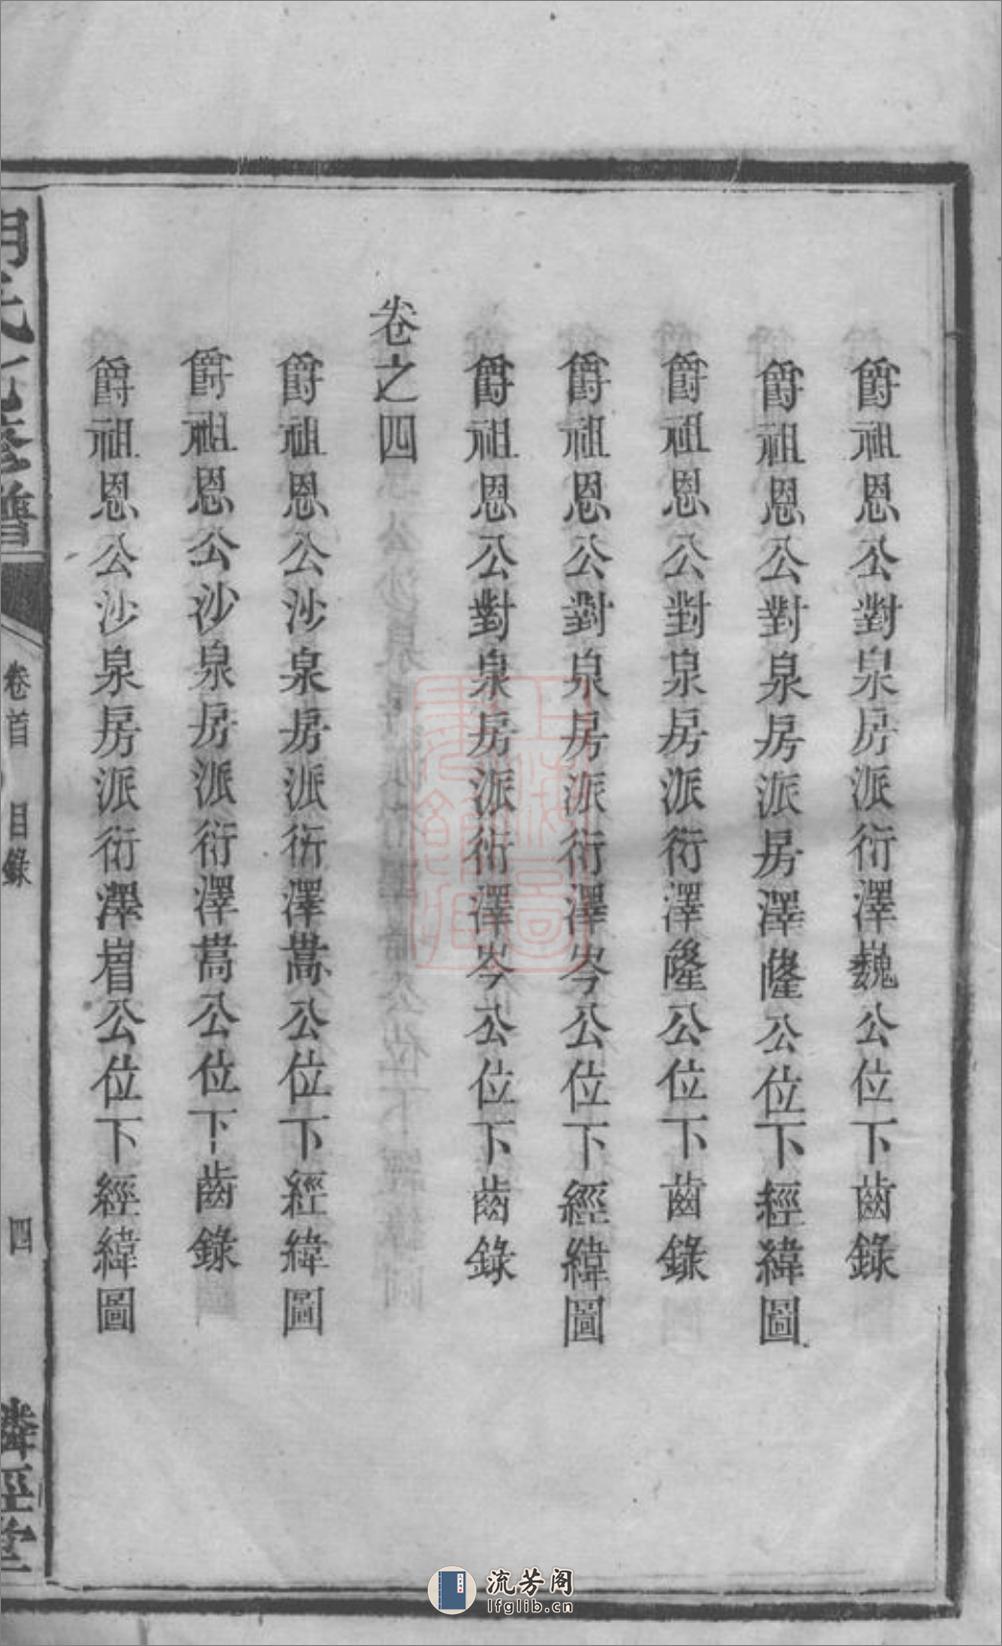 爵祖恩公對泉房派衍澤巍公位下齒錄
爵祖恩公對泉房派房澤隆公位下經緯圖
爵祖恩公對泉房派衍澤隆公位下齒錄
爵祖恩公對泉房派衍澤岑公位下經緯圖
爵祖恩公對泉房派衍澤岑公位下齒錄
卷之四
爵祖恩公沙泉房派衍澤嵩公位下經緯圖
爵祖恩公沙泉房派衍澤嵩公位下齒錄
爵祖恩公沙泉房派衍澤公位下經緯圖
氏修譜
卷首 目錄
四
麟經堂
流芳阁
lfglib.cn